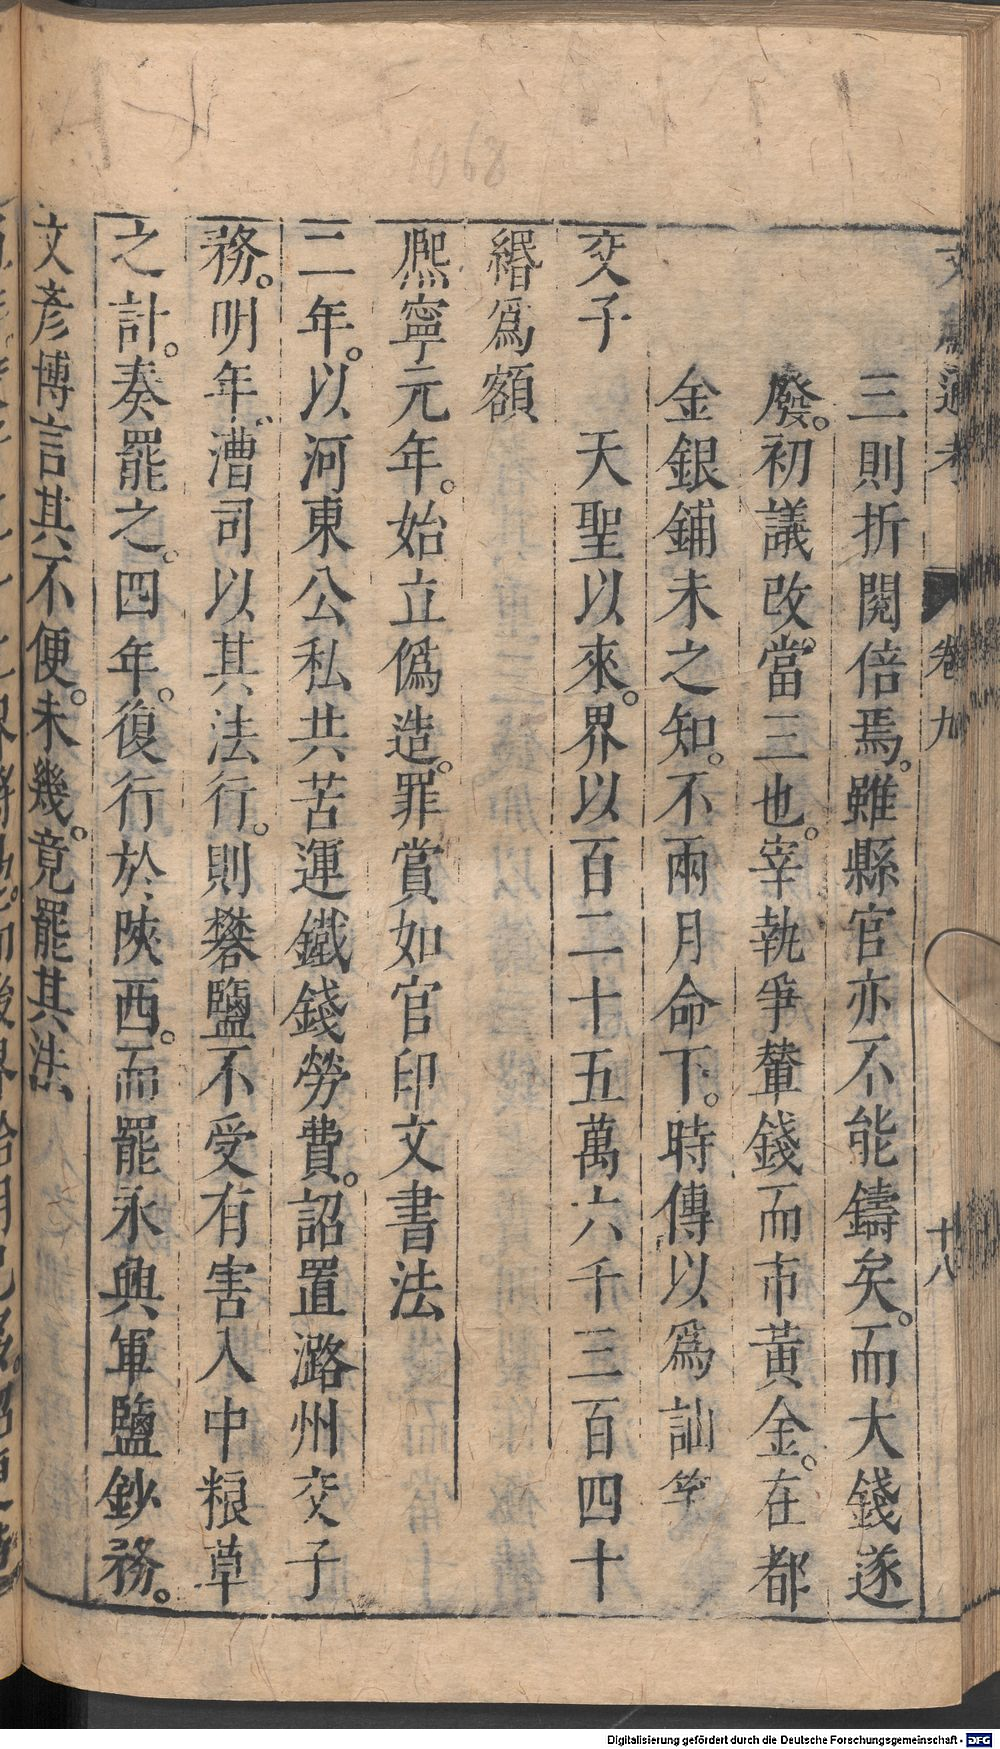 文獻通考 卷九 十八
三則折閱倍焉。雖縣官亦不能鑄矣。而大錢遂
廢。初議改當三也。宰執爭輦錢而市黃金。在都
金銀鋪未之知。不兩月命下。時傳以爲訕笑
交子 天聖以來。界以百二十五萬六千三百四十
緡爲額
熈寧元年。始立僞造。罪賞如官印文書法
二年。以河東公私共苦運鐵錢勞費。詔置潞州交子
務。明年。漕司以其法行。則礬鹽不受有害入中粮草
之計。奏罷之。四年。復行於陝西。而罷永興軍鹽鈔務。
文彥博言其不便。未幾。竟罷其法
1068
Digitalisierung gefördert durch die Deutsche Forschungsgemeinschaft - DFG